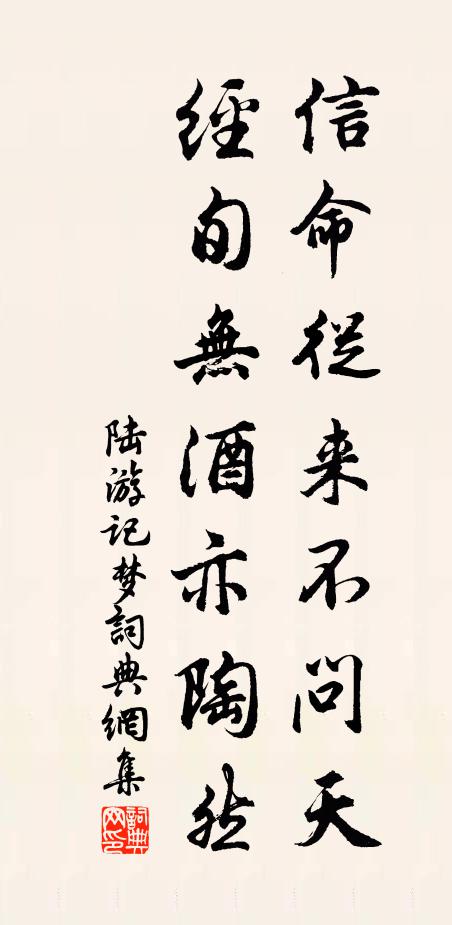 信命從来不问天
經旬無酒亦陶然
陆游记梦词典網集
詞典网印